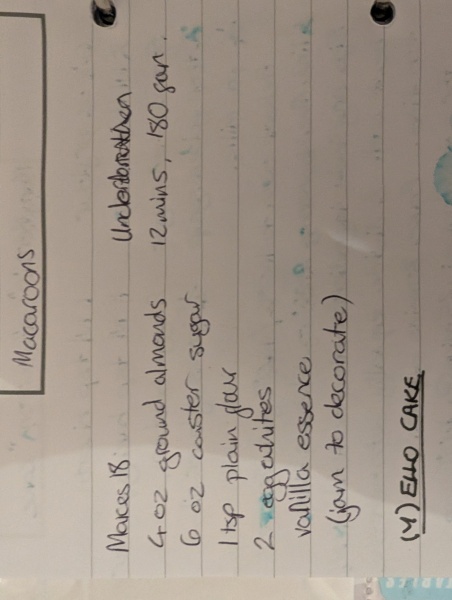 Macaroons
Makes 18.
4 oz ground almonds 12 mins, 180 fan.
6 oz caster sugar
1 tsp plain flour
2 egg whites
vanilla essence
(jam to decorate)
(Y) ELLO CAKE